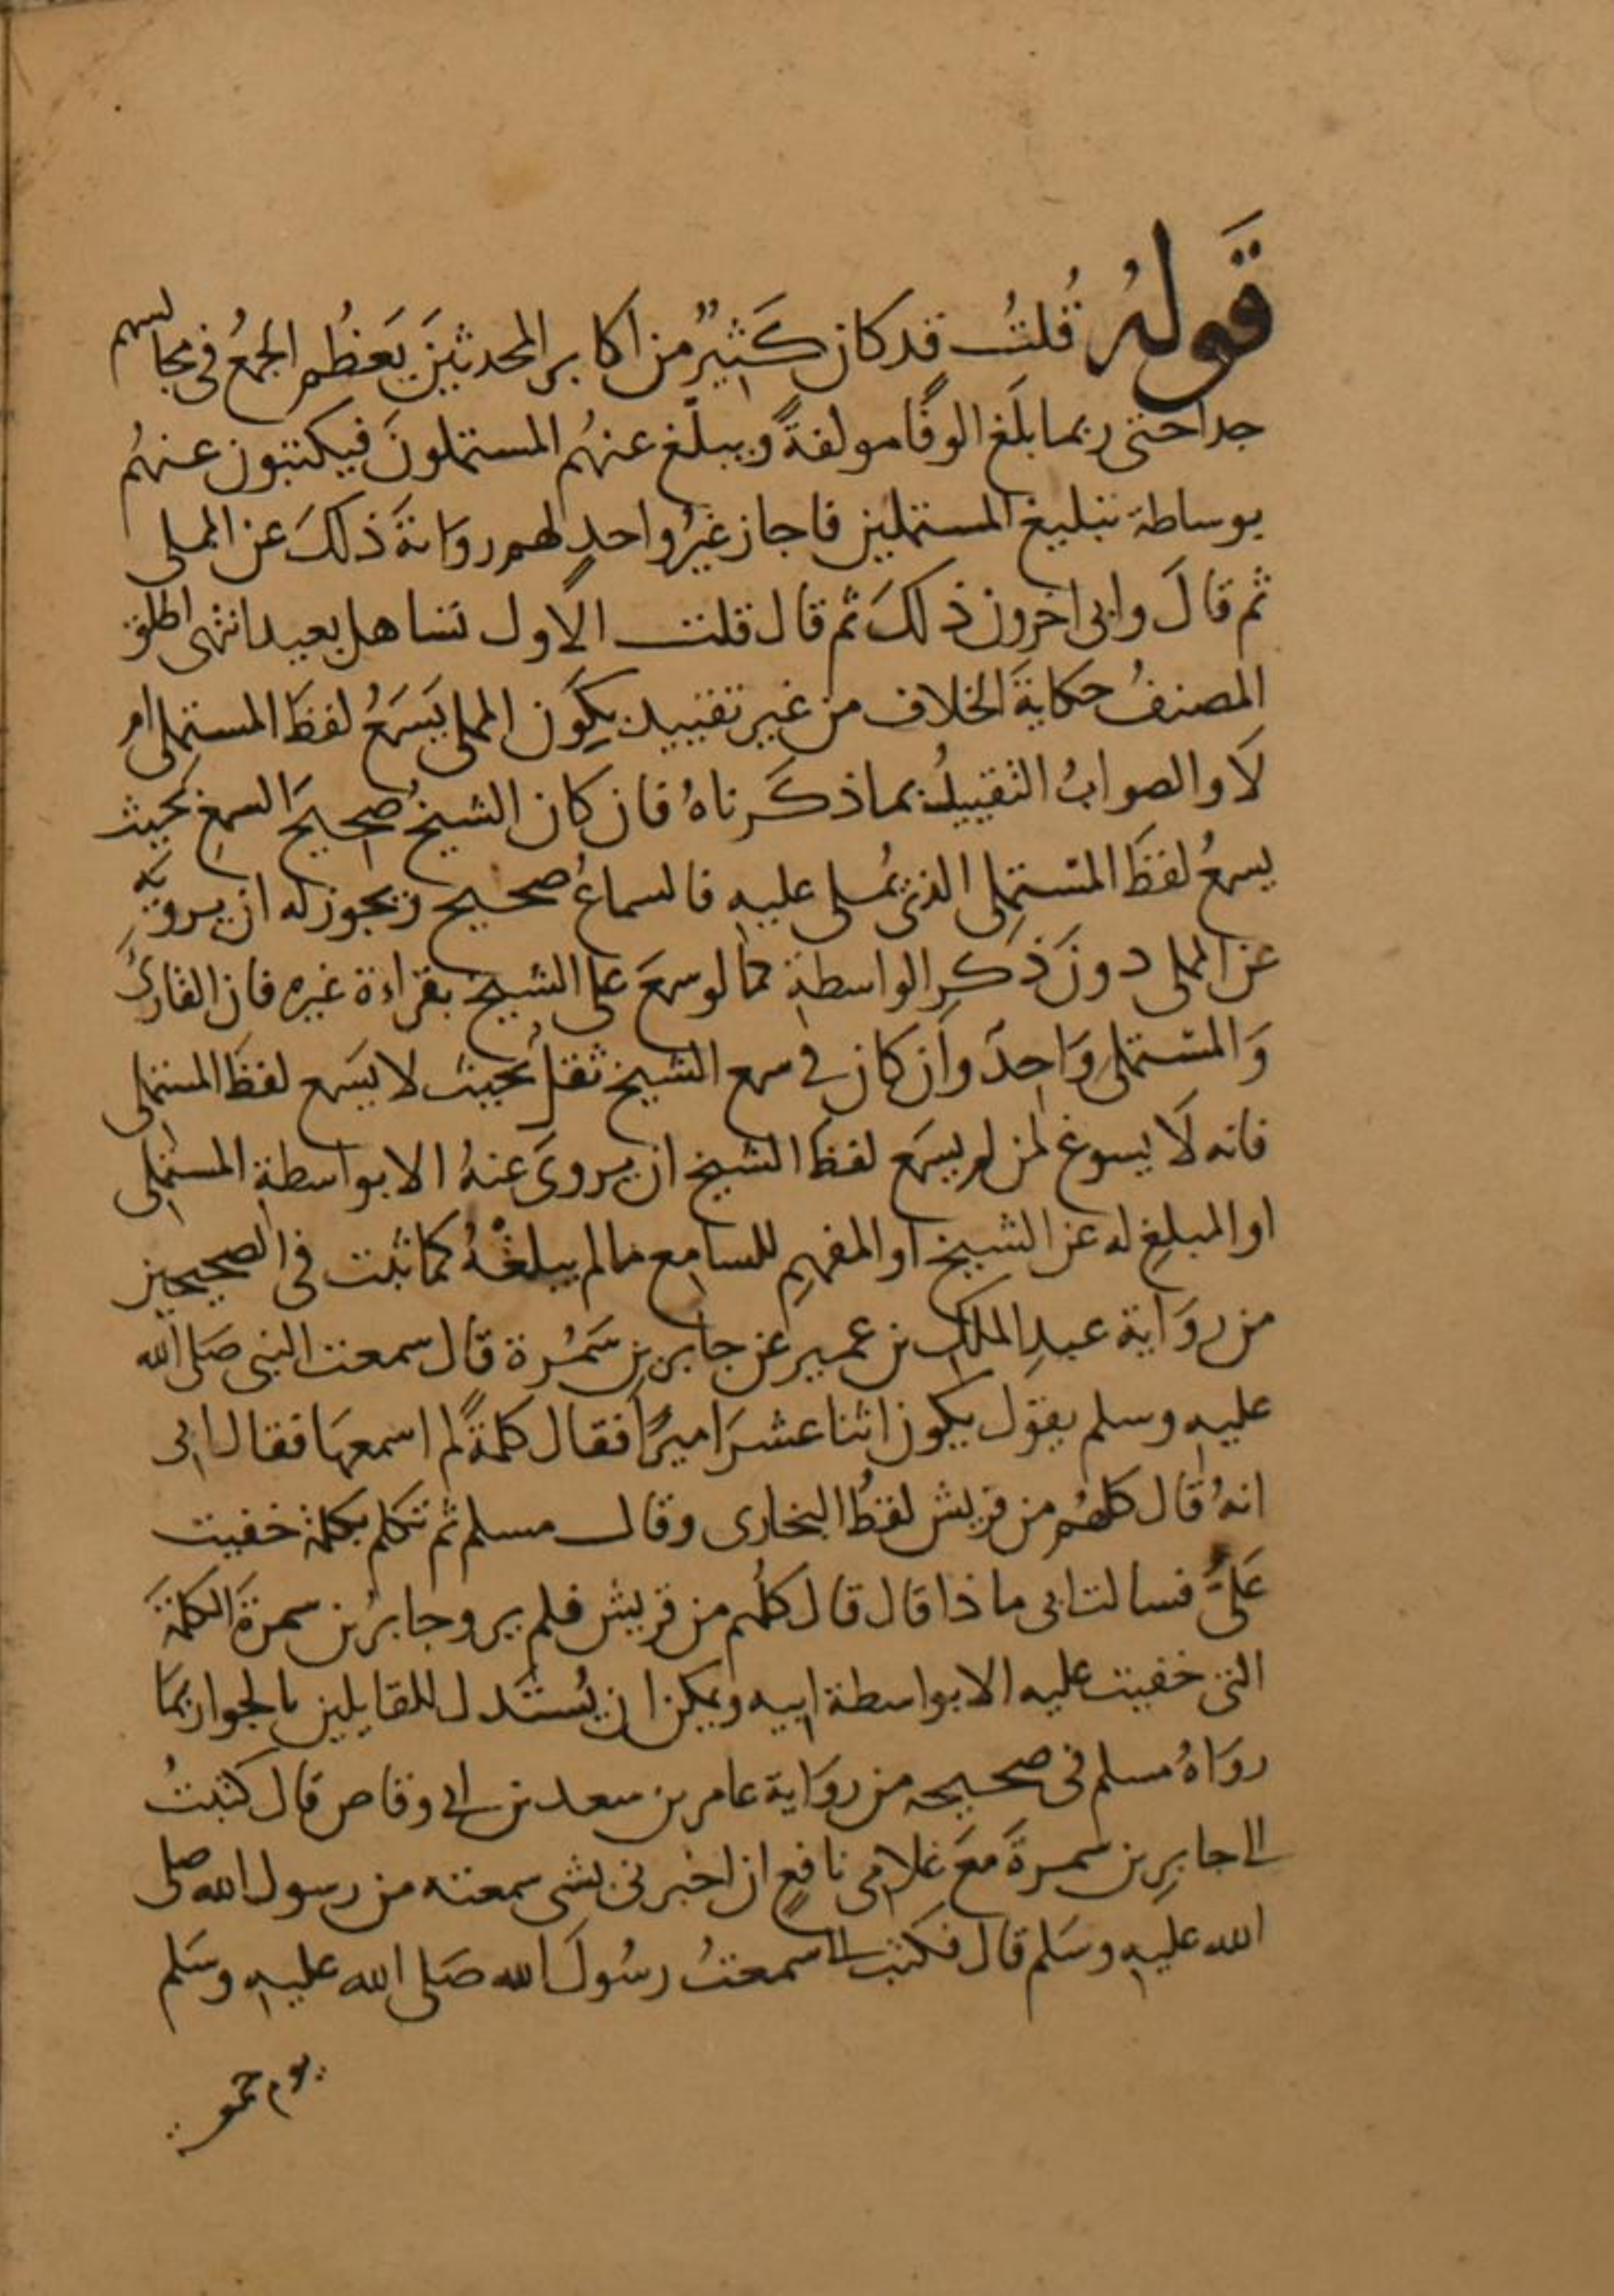 قَولهُ قُلتُ قد كان كَثيرٌ من اكابر المحدثينَ يَعظُم الجمعُ في مجالسهم
جدا حتى ربما بلَغ الوفًا مولفةً ويبلّغ عنهُم المستملونَ فيكتبون عنهُم
بوساطة تبليغ المستملين فاجاز غيرُ واحدٍ لهم روايةَ ذلكَ عن المملي
ثم قالَ وابى اخرون ذلكَ ثم قال قلت الاول تساهل بعيد انتهى اطلق
المصنفُ حكايةَ الخلاف من غير تقييد بكَون المملي يَسمَعُ لفظَ المستملي ام
لَا والصوابُ التقييدُ بما ذكَرناهُ فان كان الشيخُ صحيحَ السمعِ بحيث
يسمعُ لفظَ المستملي الذى يُملي عليهِ فالسماعُ صحيح ويجوز له ان يرويَه
عن المملي دونَ ذكرِ الواسطةِ كما لو سمعَ على الشيخ بقراءة غيره فان القارئَ
وَالمستملي وَاحدٌ وان كان في سمع الشيخ ثقلٌ بحيث لا يسَمع لفظَ المستملي
فانه لَا يسوغ لمن لم يسمَع لفظَ الشيخ ان يروىَ عنهُ الا بواسطةِ المستملي
او المبلغِ له عن الشيخ او المفهمِ للسامع ما لم يبلغْهُ كما ثبت في الصحيحين
من روَاية عبدِ الملك بن عمير عن جابر بن سَمُرة قال سمعت النبي صَلى الله
عليهِ وسلم يقول يكون اثنا عشرَ اميرًا فقال كلمةً لم اسمعهَا فقال ابى
انهُ قال كلهُم من قريش لفظُ البخارى وقال مسلم ثم تكلم بكلمة خفيت
عَليَّ فسالت ابى ماذا قال قال كلُهم من قريش فلم يرو جابرُ بن سمرةَ الكلمةَ
التى خفيت عليه الا بواسطة ابيه ويمكن ان يُستَدل للقايلين بالجواز بمَا
روَاهُ مسلم فى صحيحه من روَاية عامر بن سعد بن ابي وقاص قال كتبتُ
الى جابرِ بن سَمرةَ معَ غلامى نافعٍ ان اخبرنى بشى سمعته من رسول الله صلى
الله عليهِ وسَلم قال فكتب الي سمعتُ رسُولَ الله صَلى الله عليهِ وسَلم
يوم جمعة